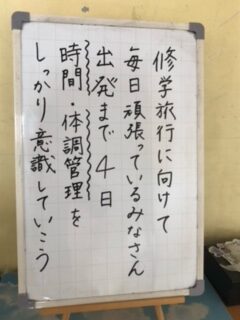 修学旅行に向けて
毎日頑張っているみなさん
出発まで4日
時間・体調管理を
しっかり意識していこう